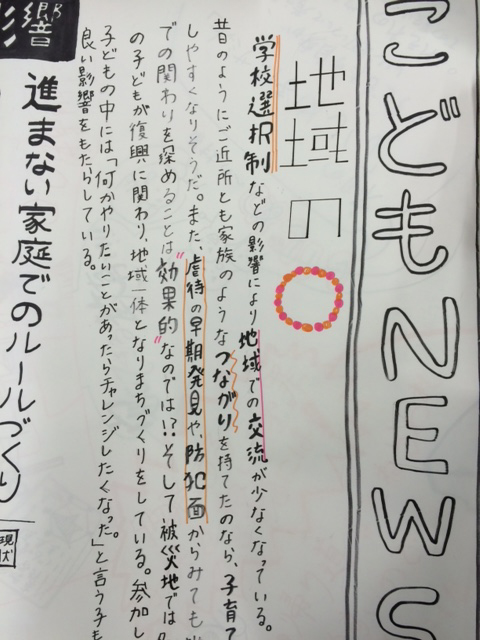 こどもNEWS
地域の
学校選択制などの影響により地域での交流が少なくなっている。
昔のようにご近所とも家族のようなつながりを持てたのなら、子育て
しやすくなりそうだ。また、虐待の早期発見や、防犯面からみても
での関わりを深めることは"効果的"なのでは!?そして被災地では
の子どもが復興に関わり、地域一体となりまちづくりをしている。参加し
子どもの中には「何かやりたいことがあったらチャレンジしたくなった。」と言う子も
良い影響をもたらしている。
影響
進まない家庭でのルールづくり
現状